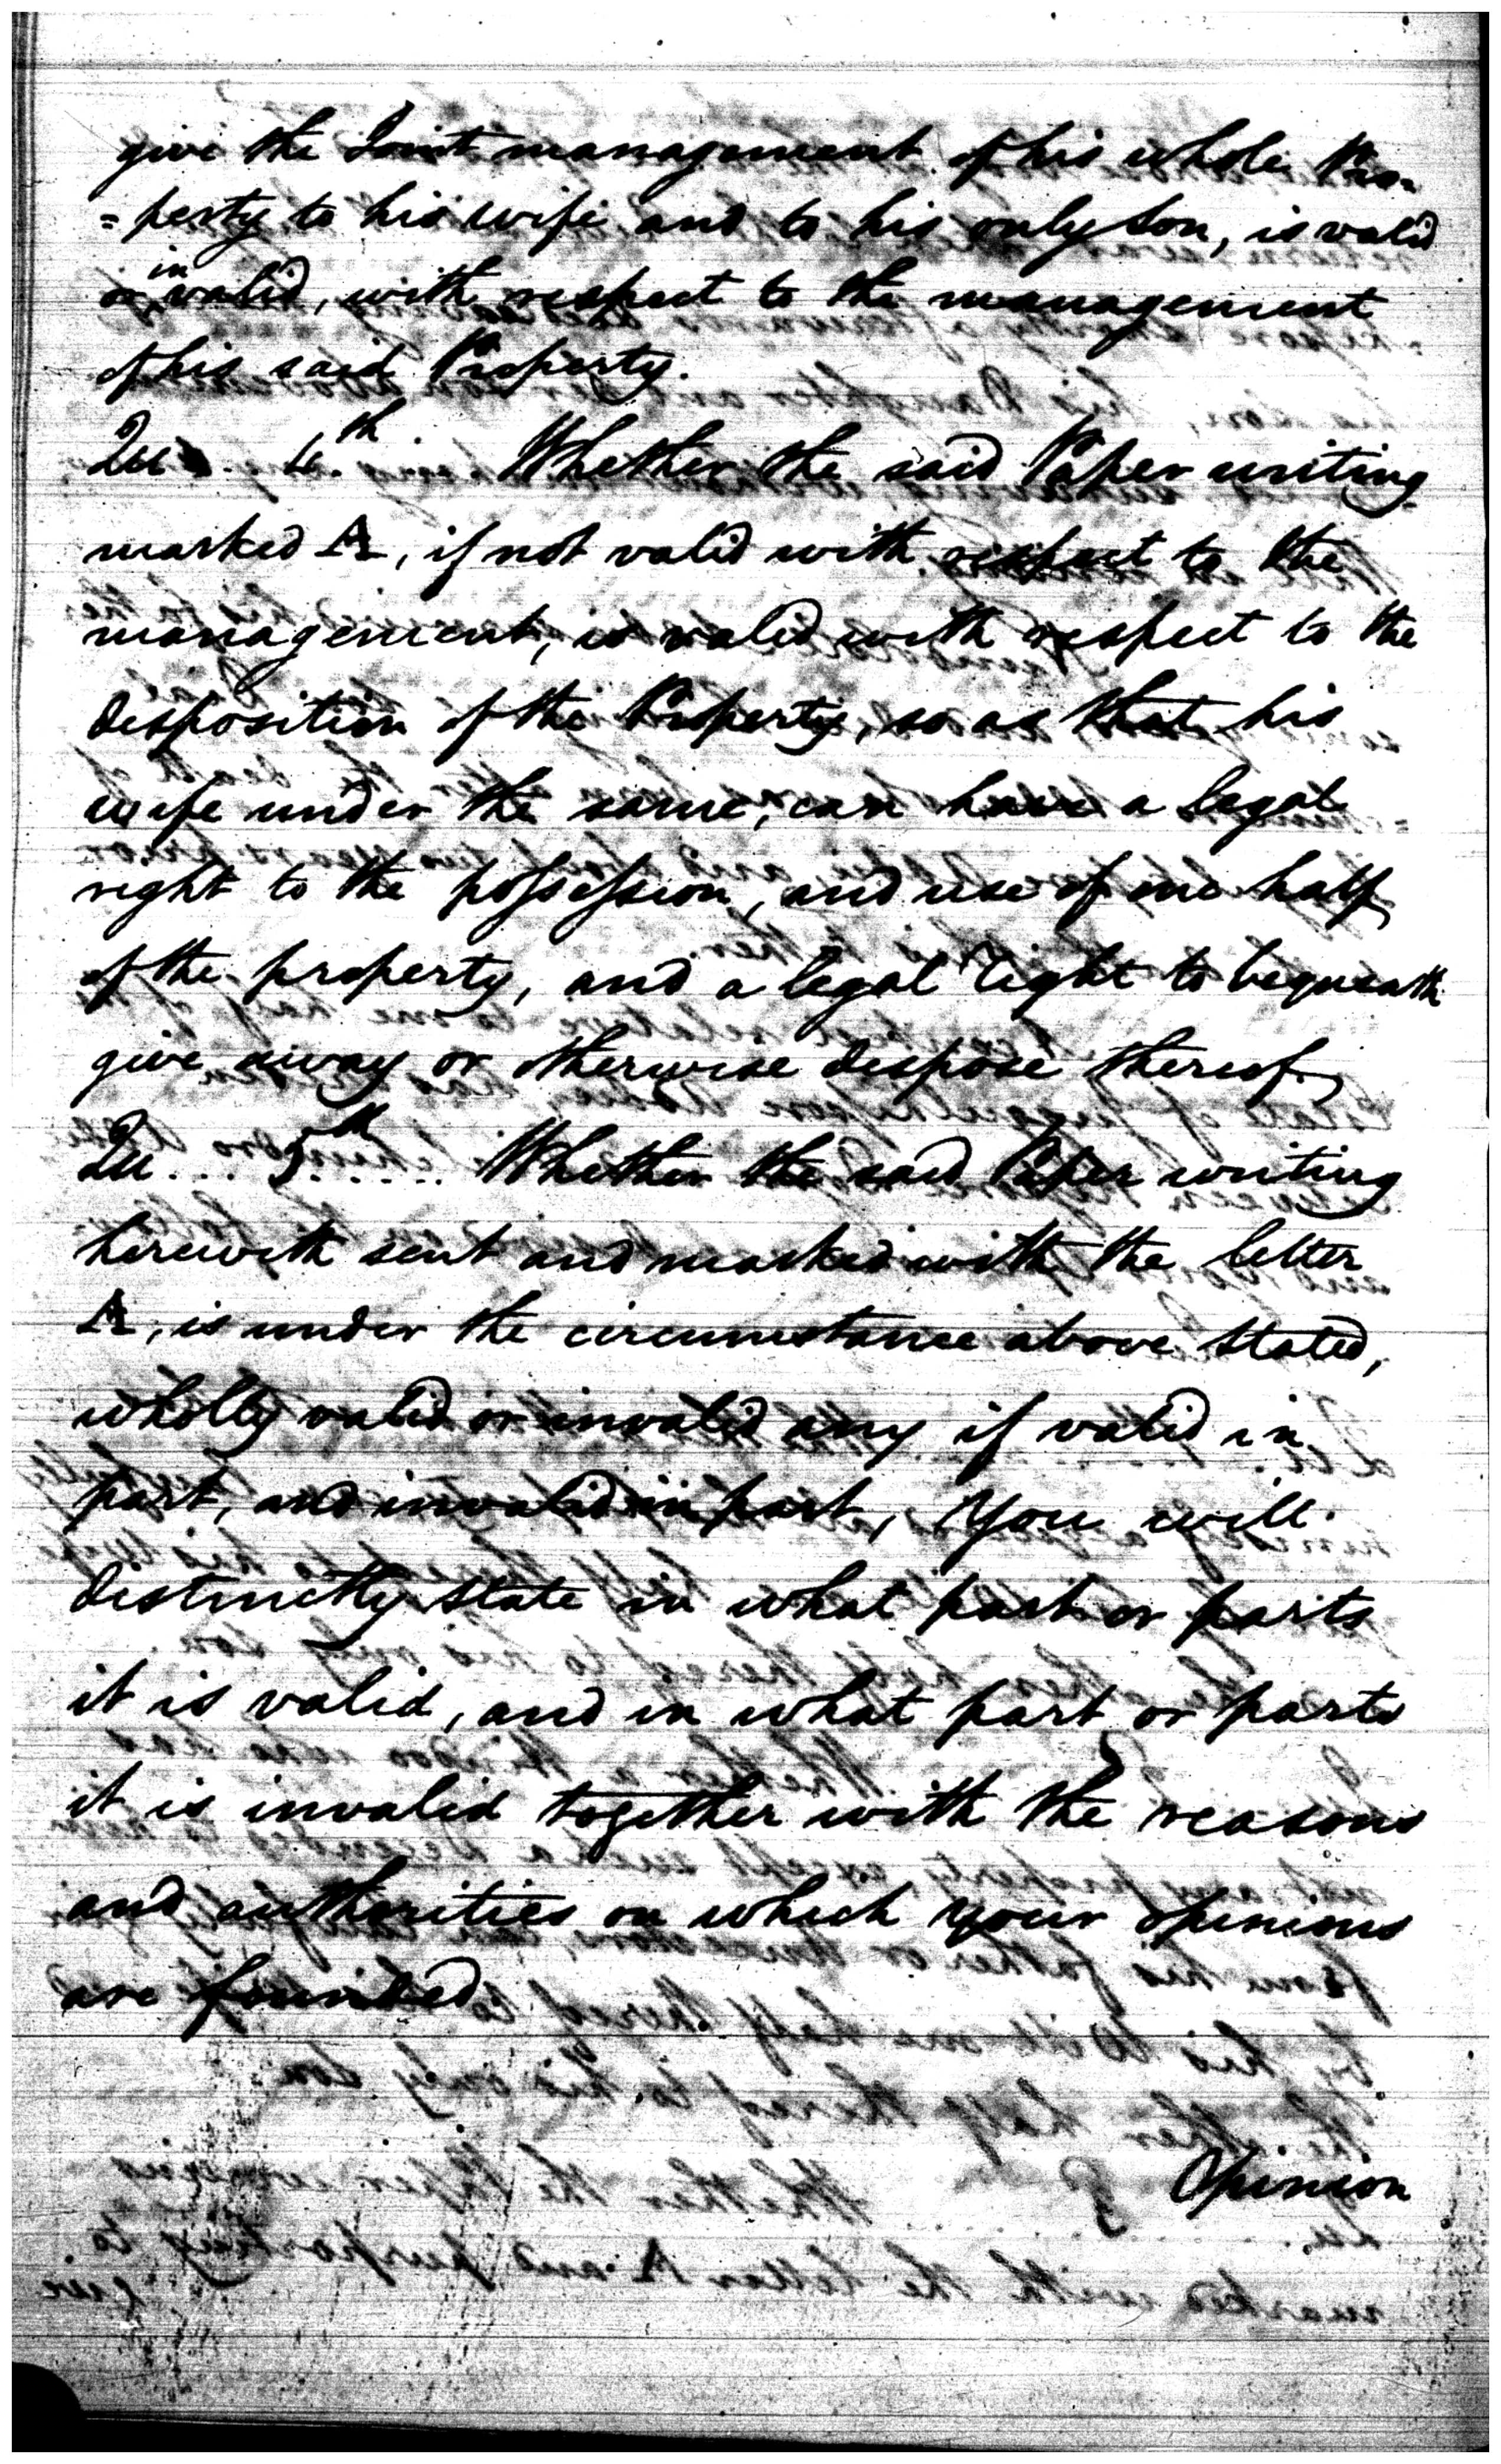 give the Joint management of his whole Pro=
=perty to his wife and to his only Son, is valid
or invalid, with respect to the management
of his said Property.
Qu . 4th . Whether the said Paper writing
marked A, if not valid with respect to the
management, is valid with respect to the
disposition of the Property, so as that his
wife under the same, can have a legal
right to the possession, and use of one half
of the property, and a legal right to bequeath
give away or otherwise dispose thereof.
Qu... 5th .... Whether the said Paper writing
herewith sent and marked with the letter
A, is under the circumstance above Stated,
wholly valid or invalid any if valid in
part, and invalid in part, You will
distinctly State in what part or parts
it is valid, and in what part or parts
it is invalid together with the reasons
and authorities on which your opinions
are founded
Opinion